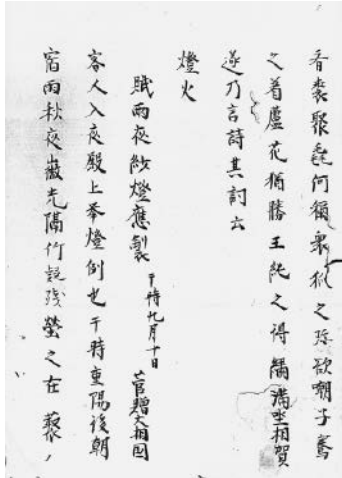 看裘聚毳何衆狐之弥欲嘲子騫
之着蘆花猶勝王純之得繻滿坐相賀
遂乃言詩其詞云
燈火
賦雨夜紗燈應製 于時九月十日 菅贈大相国
客人入夜殿上挙燈例也于時重陽後朝
宿雨秋夜微光隔竹疑残螢之在藂